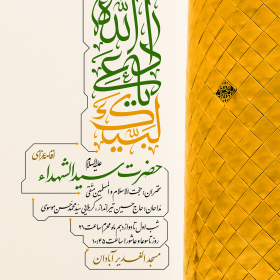 لبیک یا داعی الله
اقامه عزای
حضرت سیدالشهداء علیه‌السلام
سخنران: حجت الاسلام و المسلمین متقی
مداحان: حاج حسین تیرانداز، کربلایی سید محمد حسن موسوی
شب اول تا دوازدهم ماه محرم | ساعت ۲۱
روز تاسوعا و عاشورا | ساعت ۱۰:۴۵
مسجد الغدیر آبادان